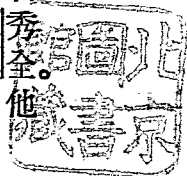 秀全。他
北京
圖書
館藏